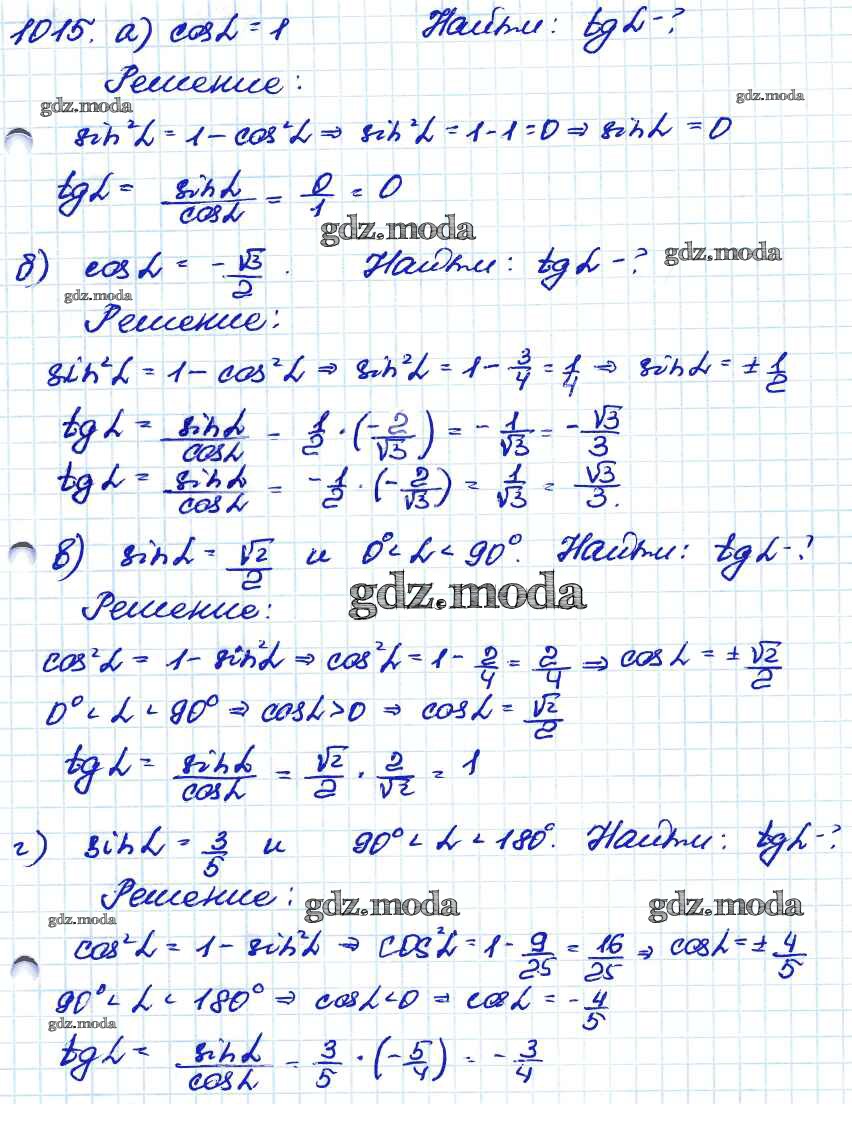 1015. а) cos α = 1 Найти: tg α - ?
Решение:
gdz.moda gdz.moda
sin²α = 1 - cos²α ⇒ sin²α = 1 - 1 = 0 ⇒ sin α = 0
tg α = sin α / cos α = 0/1 = 0
gdz.moda
б) cos α = -√3/2. Найти: tg α - ? gdz.moda
gdz.moda
Решение:
sin²α = 1 - cos²α ⇒ sin²α = 1 - 3/4 = 1/4 ⇒ sin α = ± 1/2
tg α = sin α / cos α = 1/2 · (-2/√3) = -1/√3 = -√3/3
tg α = sin α / cos α = -1/2 · (-2/√3) = 1/√3 = √3/3.
в) sin α = √2/2 и 0° < α < 90°. Найти: tg α - ?
Решение: gdz.moda
cos²α = 1 - sin²α ⇒ cos²α = 1 - 2/4 = 2/4 ⇒ cos α = ± √2/2
0° < α < 90° ⇒ cos α > 0 ⇒ cos α = √2/2
tg α = sin α / cos α = √2/2 · 2/√2 = 1
г) sin α = 3/5 и 90° < α < 180°. Найти: tg α - ?
Решение: gdz.moda gdz.moda
gdz.moda
cos²α = 1 - sin²α ⇒ cos²α = 1 - 9/25 = 16/25 ⇒ cos α = ± 4/5
90° < α < 180° ⇒ cos α < 0 ⇒ cos α = -4/5
gdz.moda
tg α = sin α / cos α = 3/5 · (-5/4) = -3/4